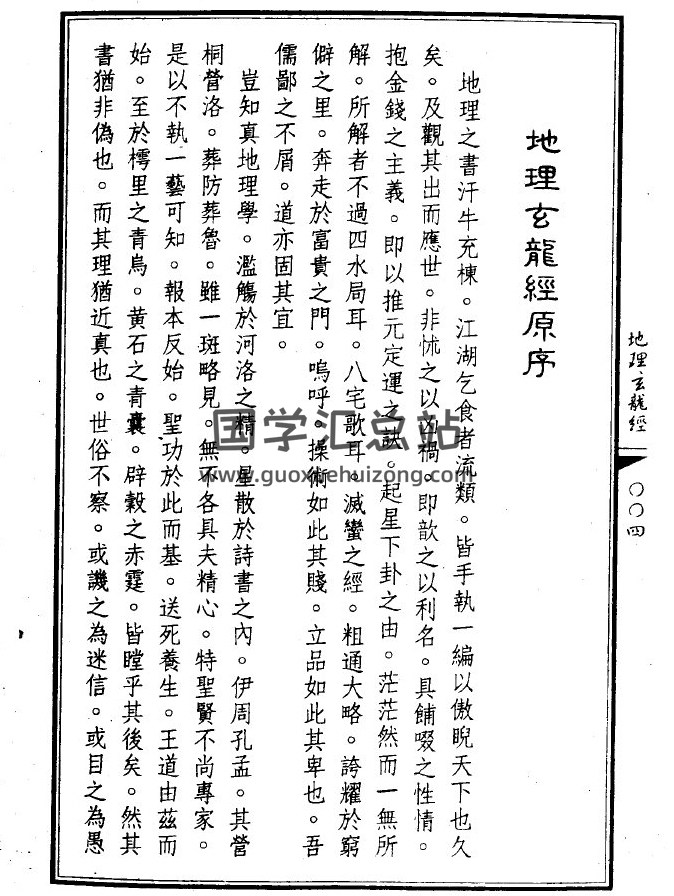 地理玄龍經原序
地理之書汗牛充棟。江湖乞食者流類。皆手執一編以傲睨天下也久
矣。及觀其出而應世。非怵之以凶禍。即歆之以利名。具餔啜之性情。
抱金錢之主義。即以推元定運之訣。起星下卦之由。茫茫然而一無所
解。所解者不過四水局耳。八宅歌耳。滅蠻之經。粗通大略。誇耀於窮
僻之里。奔走於富貴之門。嗚呼。操術如此其賤。立品如此其卑也。吾
儒鄙之不屑。道亦固其宜。
豈知真地理學。濫觴於河洛之精。星散於詩書之內。伊周孔孟。其營
桐營洛。葬防葬魯。雖一斑略見。無不各具夫精心。特聖賢不尚專家。
是以不執一藝可知。報本反始。聖功於此而基。送死養生。王道由茲而
始。至於樗里之青烏。黃石之青囊。辟穀之赤霆。皆瞠乎其後矣。然其
書猶非偽也。而其理猶近真也。世俗不察。或譏之為迷信。或目之為愚
地理玄龍經
〇〇四
国学汇总站
www.guoxuehuizong.com